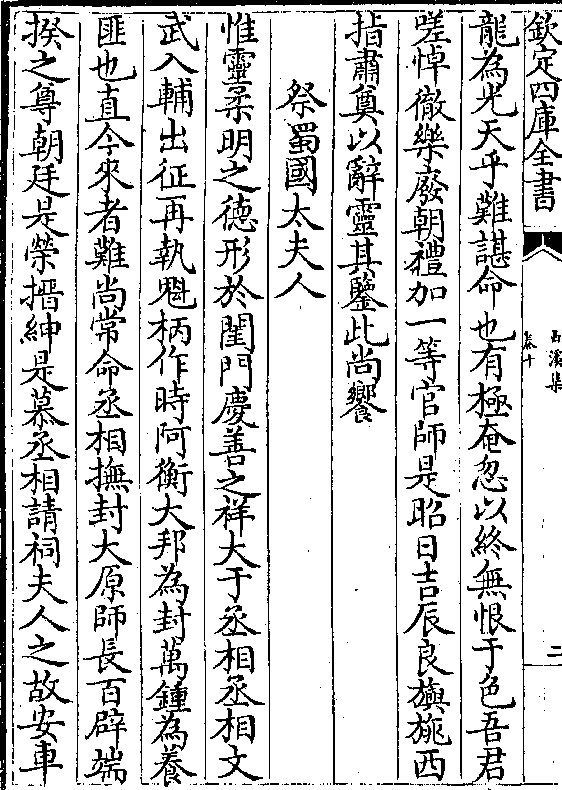 欽定四庫全書
卷十
二
龍為光天乎難諶命也有極奄忽以終無恨于色吾君
嗟悼徹樂廢朝禮加一等官師是昭日吉辰良旟旐西
指肅奠以辭靈其鑒此尚饗
祭蜀國太夫人
惟靈柔明之德形於閨門慶善之祥大于丞相丞相文
武入輔出征再執魁柄作時阿衡大邦為封萬鍾為養
匪也直今來者難尚常命丞相撫封大原師長百辟端
揆之尊朝廷是榮搢紳是慕丞相請祠夫人之故安車